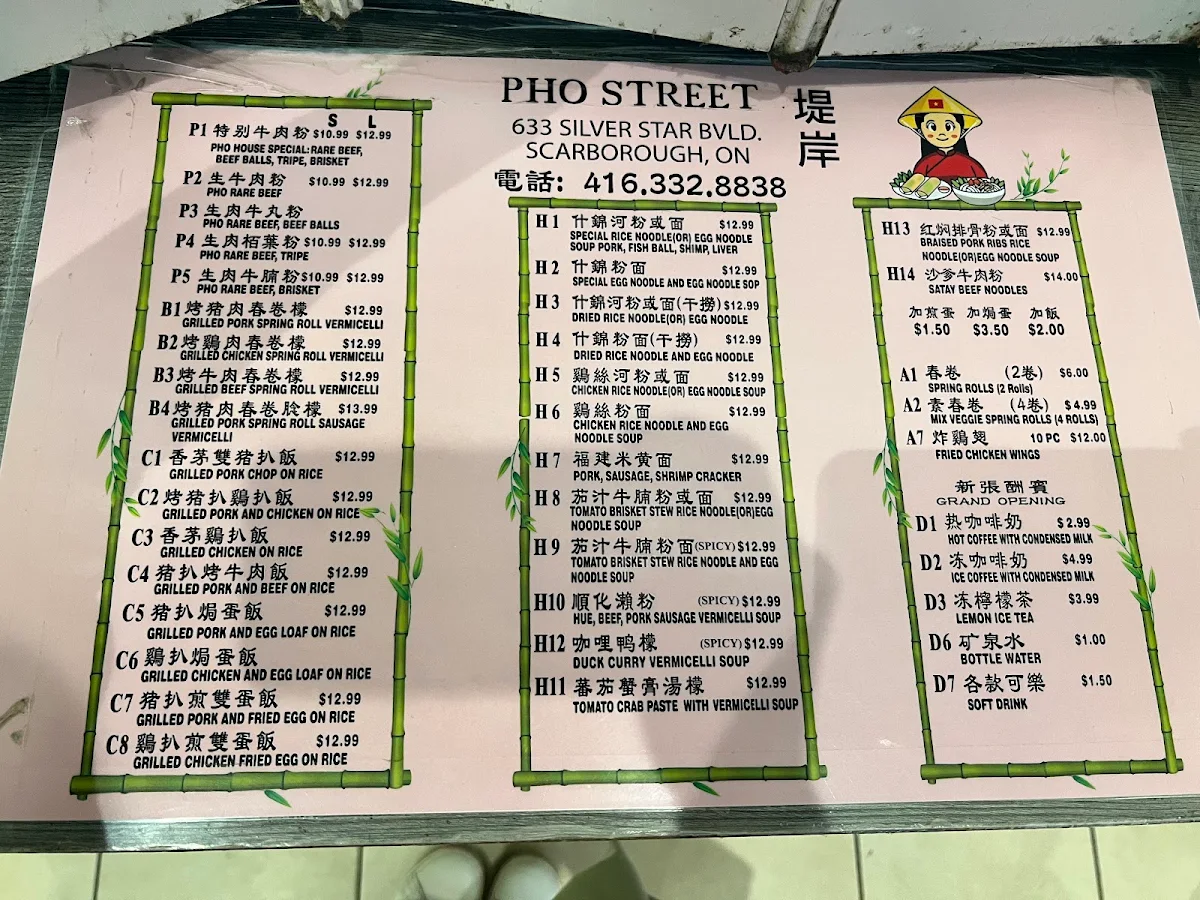 PHO STREET
堤岸
633 SILVER STAR BVLD.
SCARBOROUGH, ON
電話: 416.332.8838
S L
P1 特别牛肉粉 $10.99 $12.99
PHO HOUSE SPECIAL: RARE BEEF,
BEEF BALLS, TRIPE, BRISKET
P2 生牛肉粉 $10.99 $12.99
PHO RARE BEEF
P3 生肉牛丸粉
PHO RARE BEEF, BEEF BALLS
P4 生肉栢葉粉 $10.99 $12.99
PHO RARE BEEF, TRIPE
P5 生肉牛腩粉 $10.99 $12.99
PHO RARE BEEF, BRISKET
B1 烤猪肉春卷檬 $12.99
GRILLED PORK SPRING ROLL VERMICELLI
B2 烤鷄肉春卷檬 $12.99
GRILLED CHICKEN SPRING ROLL VERMICELLI
B3 烤牛肉春卷檬 $12.99
GRILLED BEEF SPRING ROLL VERMICELLI
B4 烤猪肉春卷脍檬 $13.99
GRILLED PORK SPRING ROLL SAUSAGE
VERMICELLI
C1 香茅雙猪扒飯 $12.99
GRILLED PORK CHOP ON RICE
C2 烤猪扒鷄扒飯 $12.99
GRILLED PORK AND CHICKEN ON RICE
C3 香茅鷄扒飯 $12.99
GRILLED CHICKEN ON RICE
C4 猪扒烤牛肉飯 $12.99
GRILLED PORK AND BEEF ON RICE
C5 猪扒焗蛋飯 $12.99
GRILLED PORK AND EGG LOAF ON RICE
C6 鷄扒焗蛋飯
GRILLED CHICKEN AND EGG LOAF ON RICE
C7 猪扒煎雙蛋飯 $12.99
GRILLED PORK AND FRIED EGG ON RICE
C8 鷄扒煎雙蛋飯 $12.99
GRILLED CHICKEN FRIED EGG ON RICE
H1 什錦河粉或面 $12.99
SPECIAL RICE NOODLE(OR) EGG NOODLE
SOUP PORK, FISH BALL, SHIMP, LIVER
H2 什錦粉面 $12.99
SPECIAL EGG NOODLE AND EGG NOODLE SOP
H3 什錦河粉或面(干撈) $12.99
DRIED RICE NOODLE(OR) EGG NOODLE
H4 什錦粉面(干撈) $12.99
DRIED RICE NOODLE AND EGG NOODLE
H5 鷄絲河粉或面 $12.99
CHICKEN RICE NOODLE(OR) EGG NOODLE SOUP
H6 鷄絲粉面 $12.99
CHICKEN RICE NOODLE AND EGG
NOODLE SOUP
H7 福建米黄面 $12.99
PORK, SAUSAGE, SHRIMP CRACKER
H8 茄汁牛腩粉或面 $12.99
TOMATO BRISKET STEW RICE NOODLE(OR)EGG
NOODLE SOUP
H9 茄汁牛腩粉面(SPICY) $12.99
TOMATO BRISKET STEW RICE NOODLE AND EGG
NOODLE SOUP
H10 順化瀨粉 (SPICY) $12.99
HUE, BEEF, PORK SAUSAGE VERMICELLI SOUP
H12 咖哩鸭檬 (SPICY) $12.99
DUCK CURRY VERMICELLI SOUP
H11 蕃茄蟹膏湯檬 $12.99
TOMATO CRAB PASTE WITH VERMICELLI SOUP
H13 红焖排骨粉或面 $12.99
BRAISED PORK RIBS RICE
NOODLE(OR)EGG NOODLE SOUP
H14 沙爹牛肉粉 $14.00
SATAY BEEF NOODLES
加煎蛋 加焗蛋 加飯
$1.50 $3.50 $2.00
A1 春卷 (2卷) $6.00
SPRING ROLLS (2 Rolls)
A2 素春卷 (4卷) $4.99
MIX VEGGIE SPRING ROLLS (4 ROLLS)
A7 炸鷄翅 10 PC $12.00
FRIED CHICKEN WINGS
新張酬賓
GRAND OPENING
D1 热咖啡奶 $2.99
HOT COFFEE WITH CONDENSED MILK
D2 冻咖啡奶 $4.99
ICE COFFEE WITH CONDENSED MILK
D3 冻檸檬茶 $3.99
LEMON ICE TEA
D6 矿泉水 $1.00
BOTTLE WATER
D7 各款可樂 $1.50
SOFT DRINK